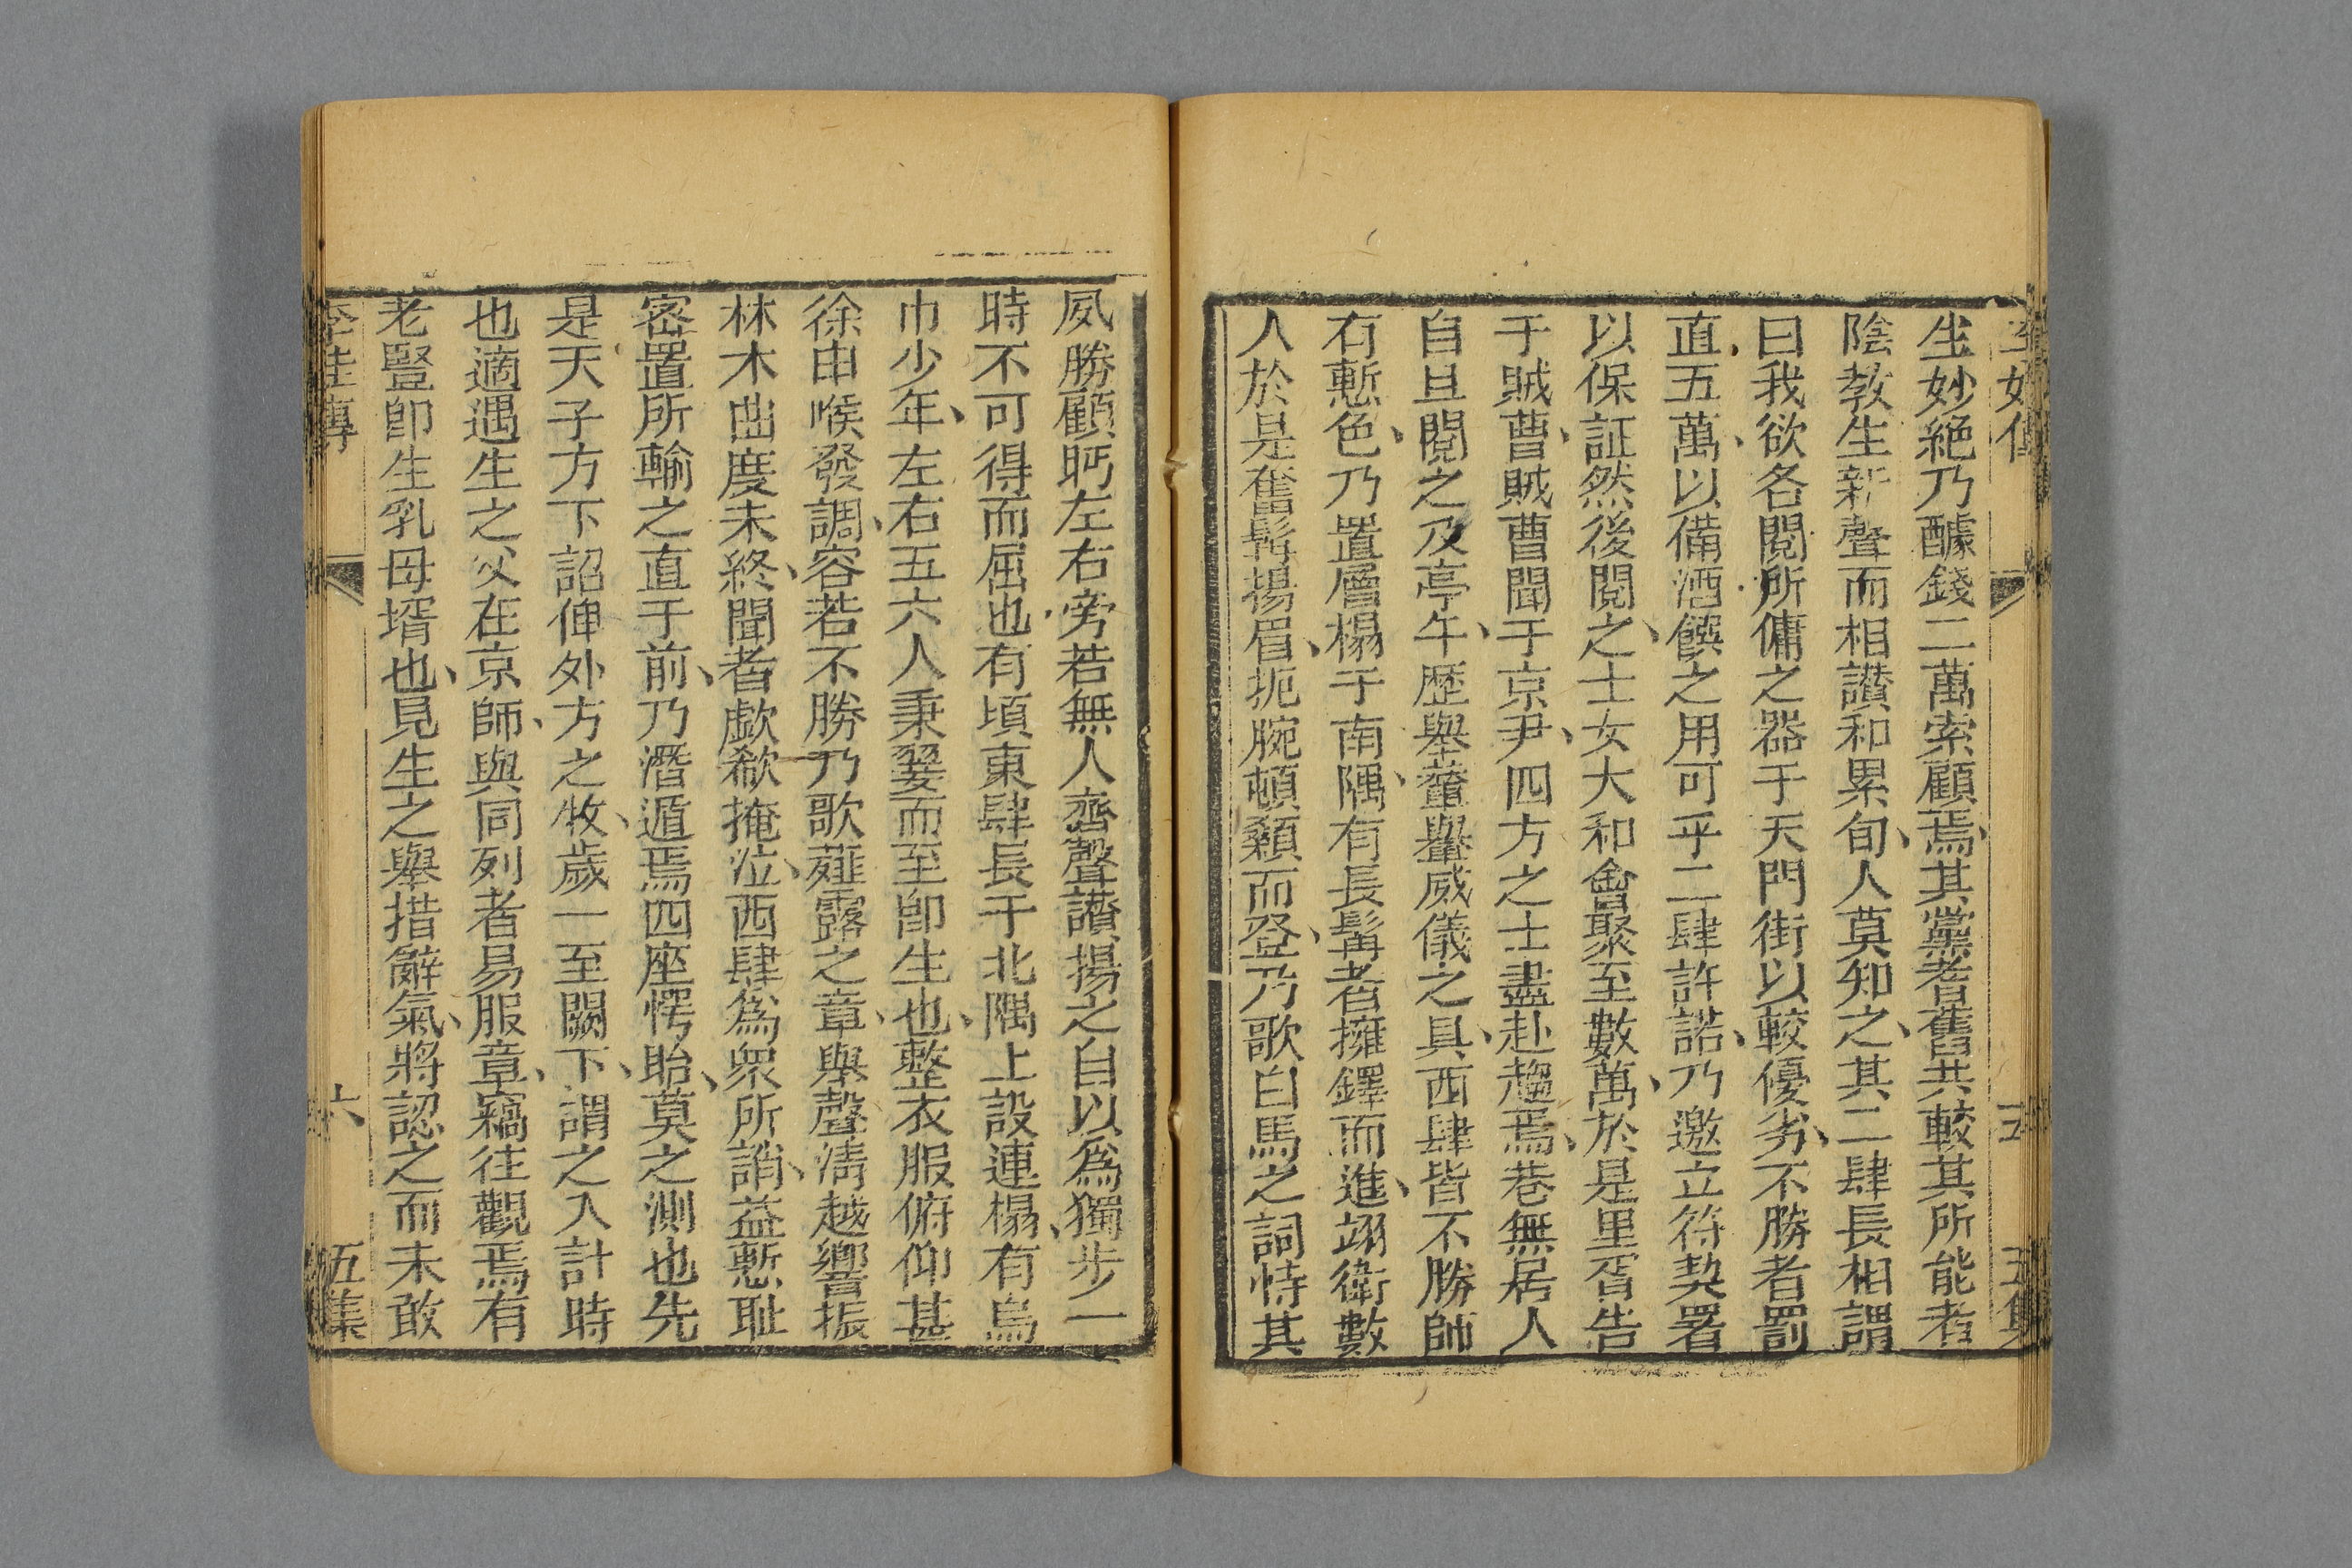 生妙絕乃醵錢二萬索顧焉其黨者舊共較其所能者
陰教生新聲而相讃和累旬人莫知之其二肆長相謂
曰我欲各閱所傭之器于天門街以較優劣不勝者罰
直五萬以備酒饌之用可乎二肆許諾乃邀立符契署
以保証然後閱之士女大和會聚至數萬於是里胥告
于賊曹賊曹聞于京尹四方之士盡赴趨焉巷無居人
自旦閱之及亭午歷舉輦轝威儀之具西肆皆不勝師
有慙色乃置層榻于南隅有長髯者擁鐸而進翊衛數
人於是奮髯揚眉扼腕頓顙而登乃歌白馬之詞恃其
夙勝顧眄左右旁若無人齊聲讃揚之自以爲獨步一
時不可得而屈也有頃東肆長于北隅上設連榻有烏
巾少年左右五六人秉翣而至卽生也整衣服俯仰甚
徐申喉發調容若不勝乃歌薤露之章舉聲淸越響振
林木曲度未終聞者歔欷掩泣西肆爲衆所誚益慙耻
密置所輸之直于前乃潛遁焉四座愕眙莫之測也先
是天子方下詔俾外方之牧歲一至闕下謂之入計時
也適遇生之父在京師與同列者易服章竊往觀焉有
老豎卽生乳母壻也見生之舉措辭氣將認之而未敢
李娃傳 六 五集